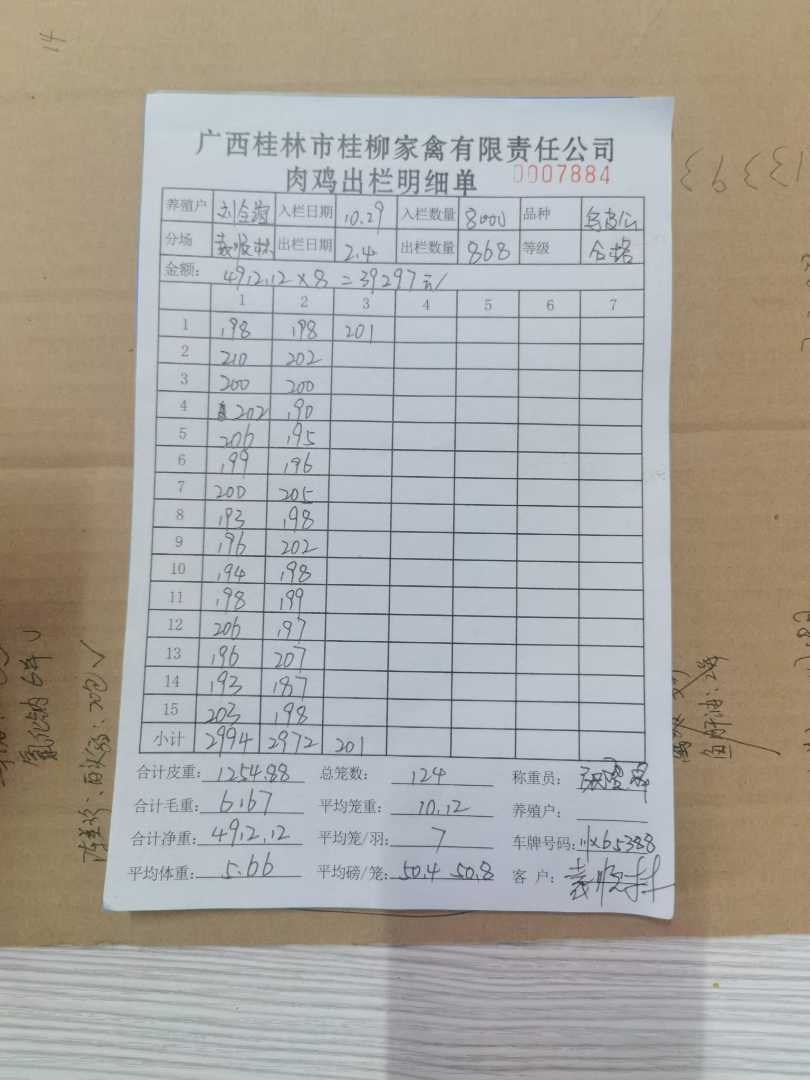 14
广西桂林市桂柳家禽有限责任公司
肉鸡出栏明细单 0007884
养殖户 入栏日期 10.29 入栏数量 8000 品种
分场 义顺林 出栏日期 2.4 出栏数量 868 等级 合格
金额: 4912.12×8=39297元/
1 2 3 4 5 6 7
1 198 198 201
2 210 202
3 200 200
4 202 190
5 206 195
6 199 196
7 200 205
8 193 198
9 196 202
10 194 198
11 198 199
12 206 197
13 196 207
14 193 187
15 203 198
小计 2994 2972 201
合计皮重: 1254.88 总笼数: 124 称重员:
合计毛重: 6167 平均笼重: 10.12 养殖户:
合计净重: 4912.12 平均笼/羽: 7 车牌号码: 65388
平均体重: 5.66 平均磅/笼: 50.4 50.8 客 户:
氯化钠6件
20包✓
鱼肝油:2件